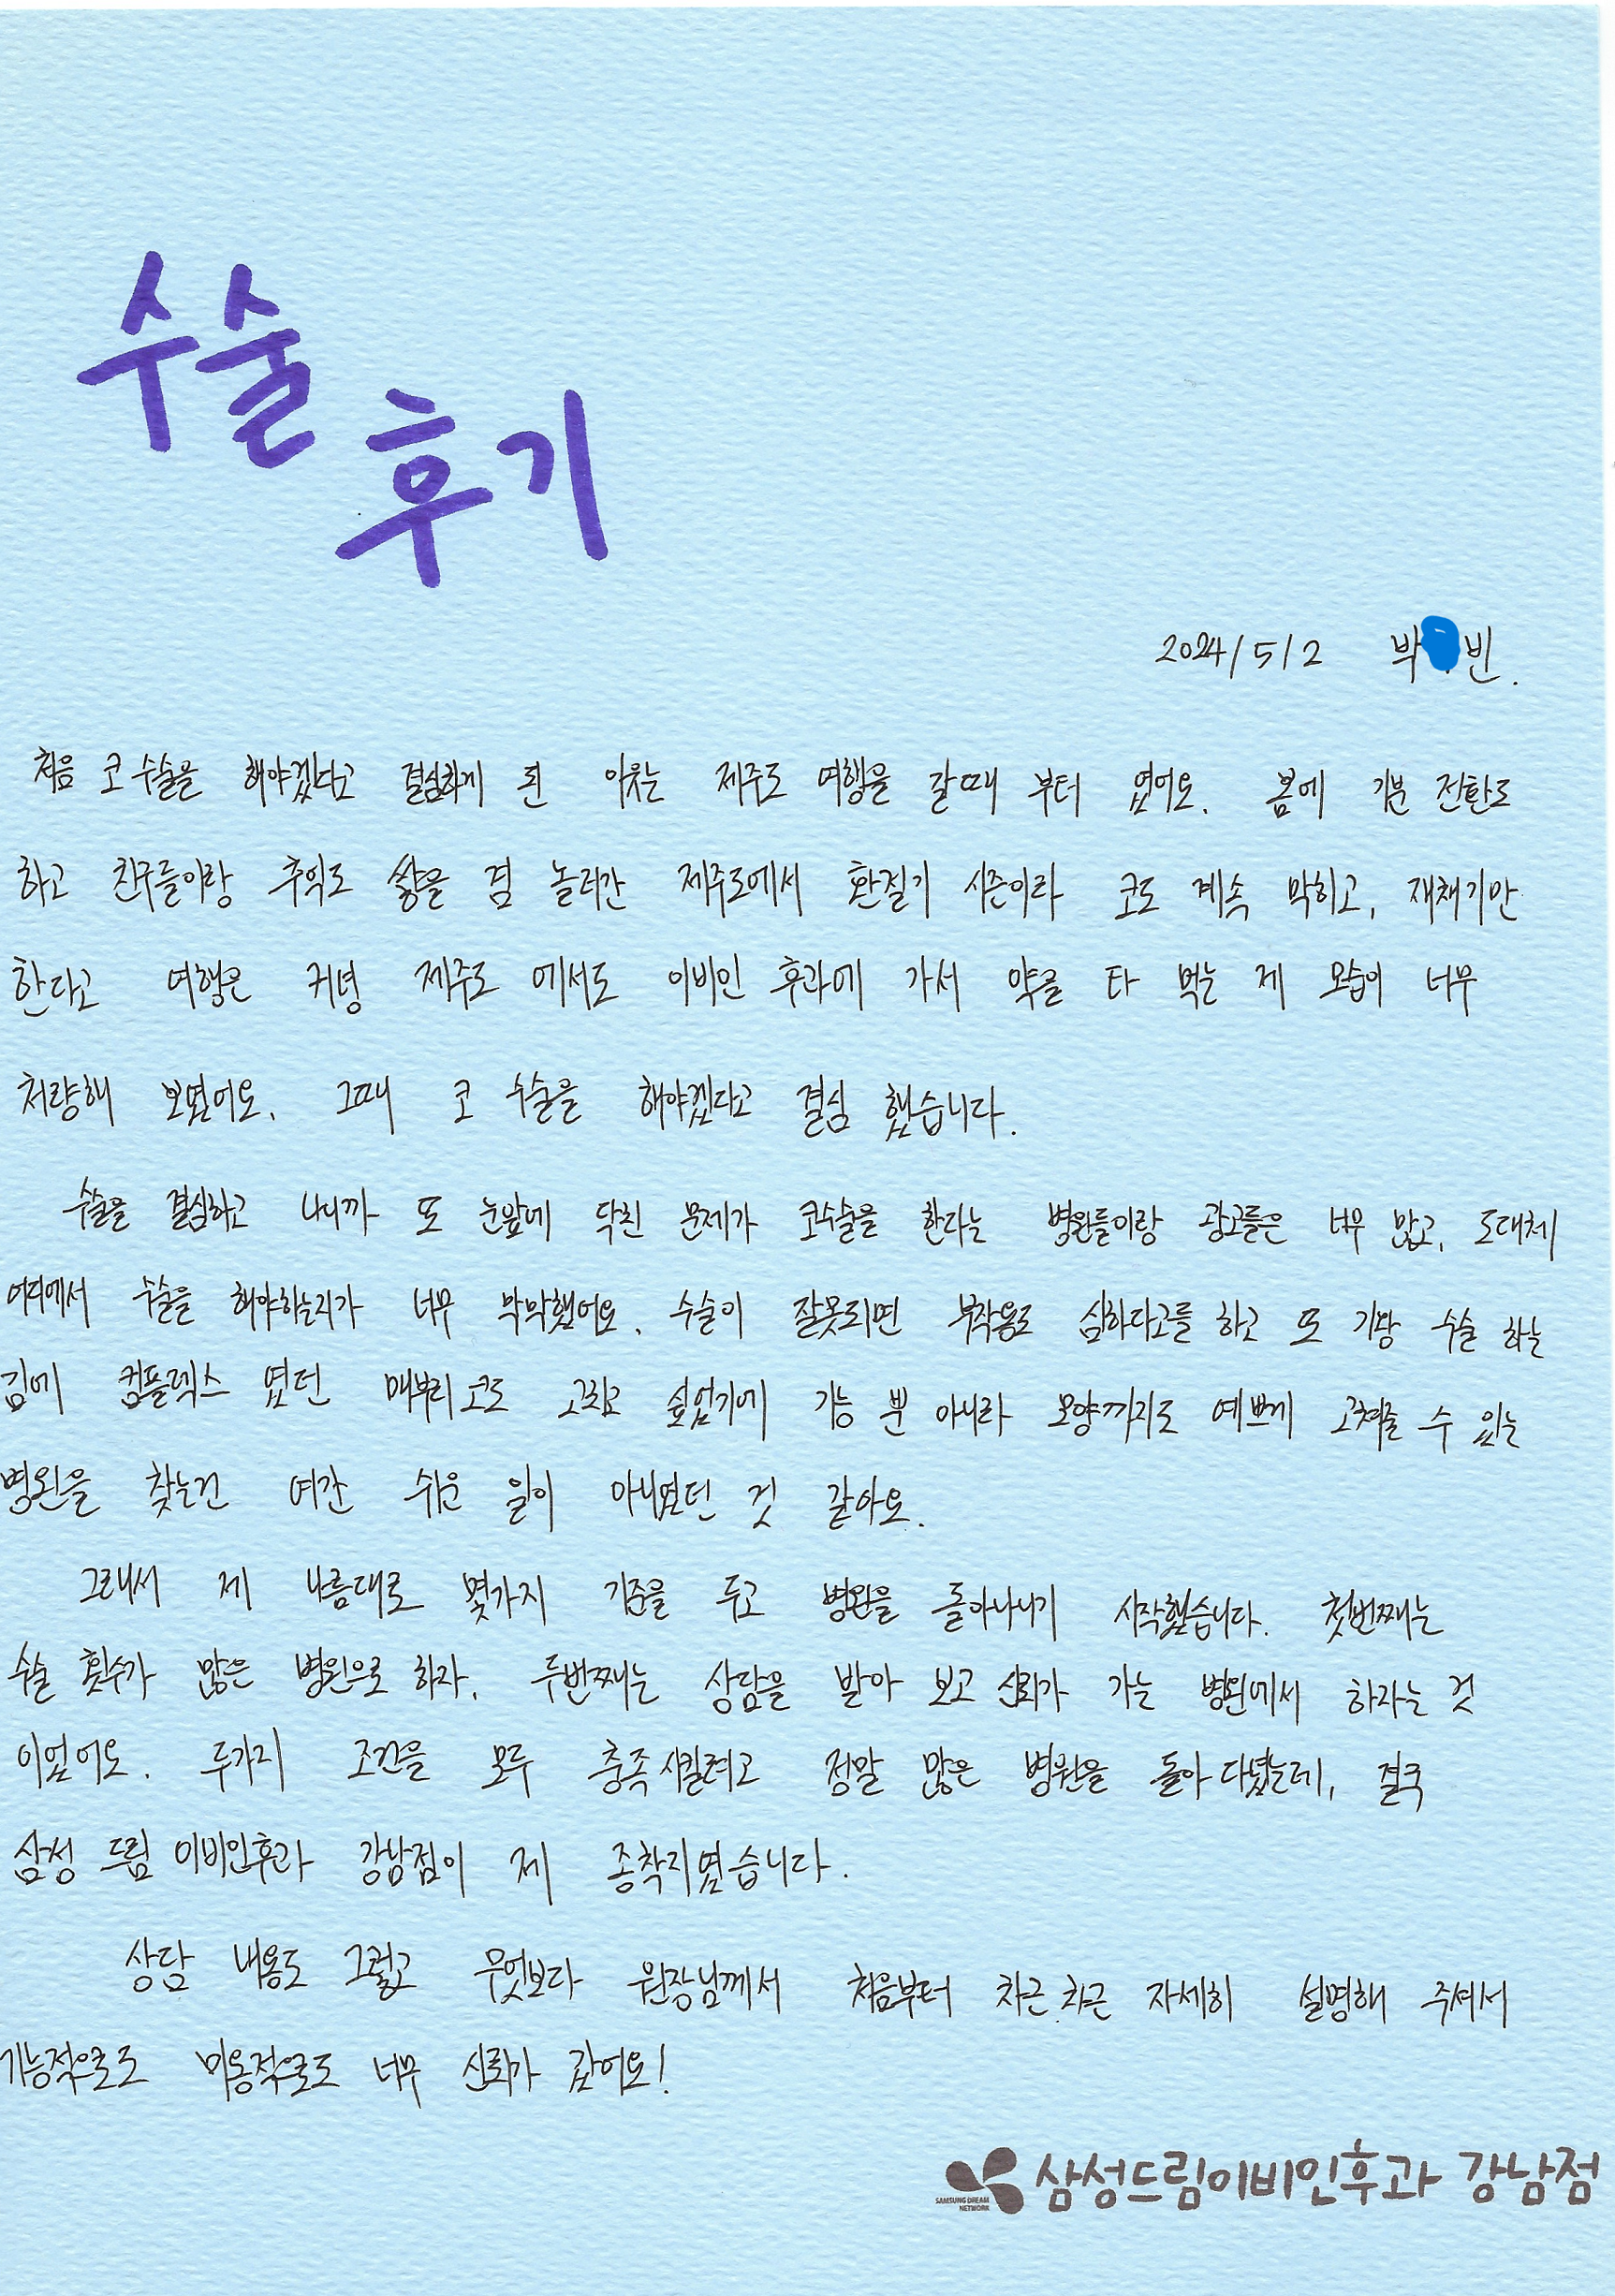 수술
후기
2024/5/2 박 빈.
처음 코 수술을 해야겠다고 결심하게 된 이유는 제주도 여행을 갈때 부터 였어요. 봄에 기분 전환도
하고 친구들이랑 추억도 쌓을 겸 놀러간 제주도에서 환절기 시즌이라 코도 계속 막히고, 재채기만
한다고 여행은 커녕 제주도 에서도 이비인 후과에 가서 약을 타 먹는 제 모습이 너무
처량해 보였어요. 그때 코 수술을 해야겠다고 결심 했습니다.
수술을 결심하고 나니까 또 눈앞에 닥친 문제가 코수술을 한다는 병원들이랑 광고들은 너무 많고, 도대체
어디에서 수술을 해야하는지가 너무 막막했어요. 수술이 잘못되면 부작용도 심하다고들 하고 또 기왕 수술 하는
김에 컴플렉스 였던 매부리코도 고치고 싶었기에 기능 뿐 아니라 모양까지도 예쁘게 고쳐줄 수 있는
병원을 찾는건 여간 쉬운 일이 아니였던 것 같아요.
그래서 제 나름대로 몇가지 기준을 두고 병원을 돌아다니기 시작했습니다. 첫번째는
수술 횟수가 많은 병원으로 하자. 두번째는 상담을 받아 보고 신뢰가 가는 병원에서 하자는 것
이었어요. 두가지 조건을 모두 충족시킬려고 정말 많은 병원을 돌아 다녔는데, 결국
삼성 드림 이비인후과 강남점이 제 종착지였습니다.
상담 내용도 그렇고 무엇보다 원장님께서 처음부터 차근 차근 자세히 설명해 주셔서
기능적으로도 미용적으로도 너무 신뢰가 갔어요!
SAMSUNG DREAM NETWORK 삼성드림이비인후과 강남점